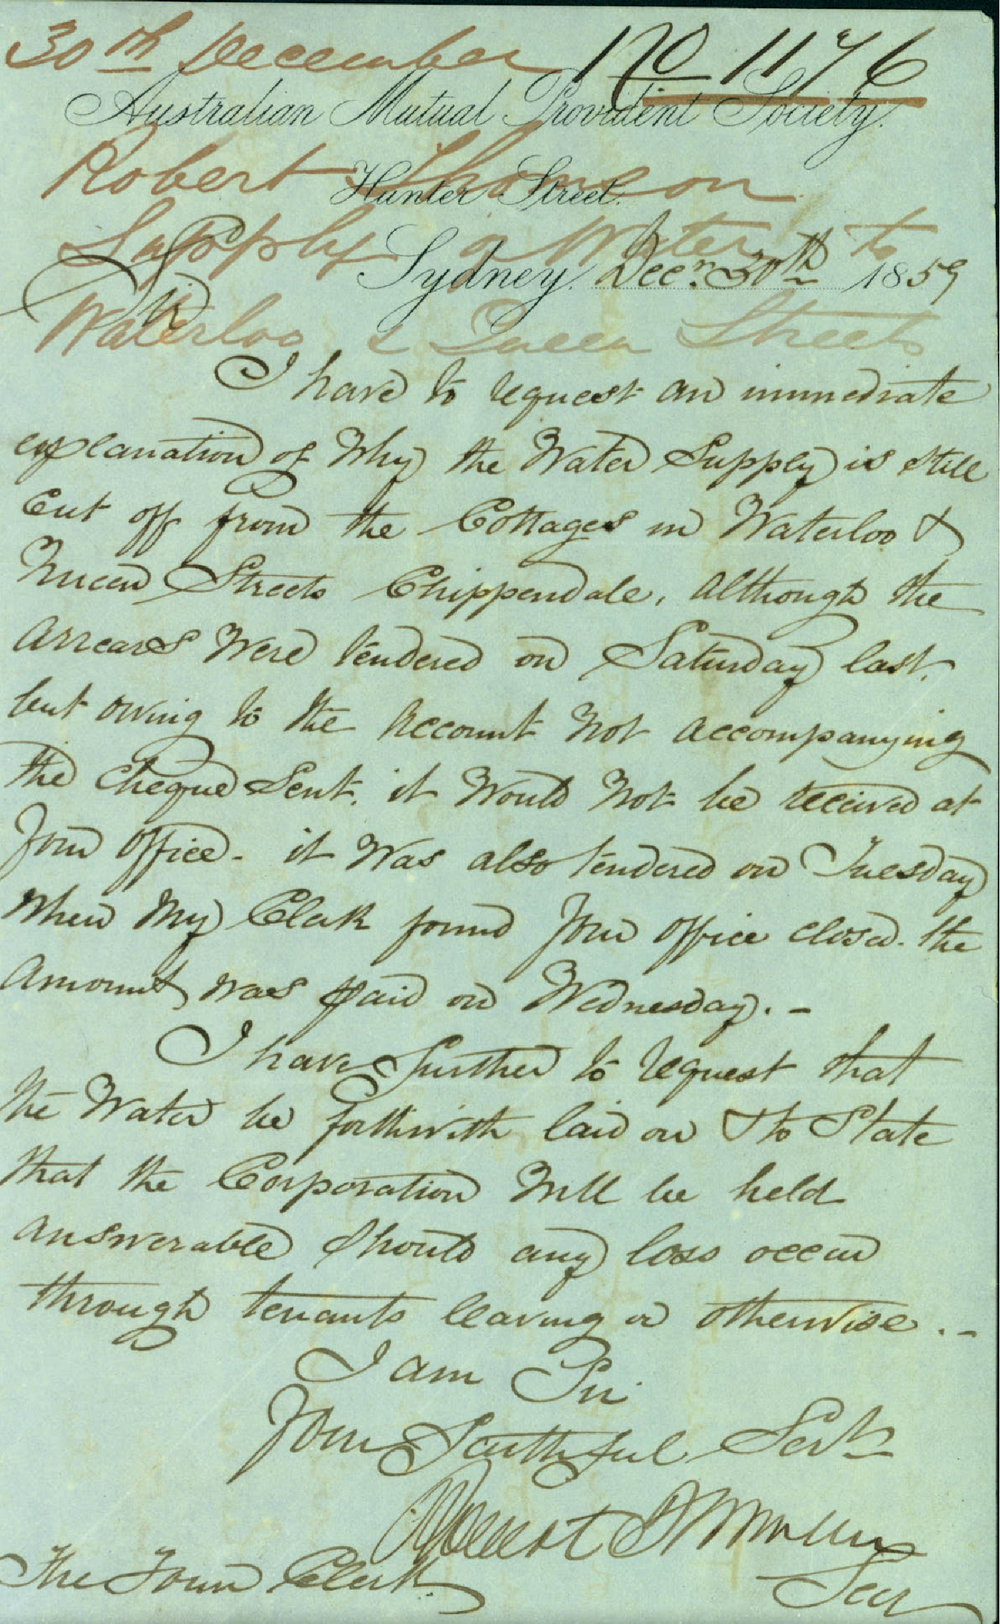 30th December No 1176
Australian Mutual Provident Society.
Robert Thomson
Hunter Street.
Supply of Water to
Sydney. Decr. 30th 1859
Sir
Waterloo & Queen Streets
I have to request an immediate
explanation of Why the Water Supply is still
Cut off from the Cottages in Waterloo &
Queen Streets Chippendale, although the
Arrears Were tendered on Saturday last,
but owing to the Account Not accompanying
the Cheque Sent, it Would Not be received at
Your Office - it Was also tendered on Tuesday
When My Clerk found Your Office closed. the
Amount was paid on Wednesday. -
I have further to request that
the Water be forthwith laid on & to State
that the Corporation Will be held
answerable Should any loss occur
through tenants leaving or otherwise. -
I am Sir
Your Faithful Servt
Robert Thomson
Secy
The Town Clerk.